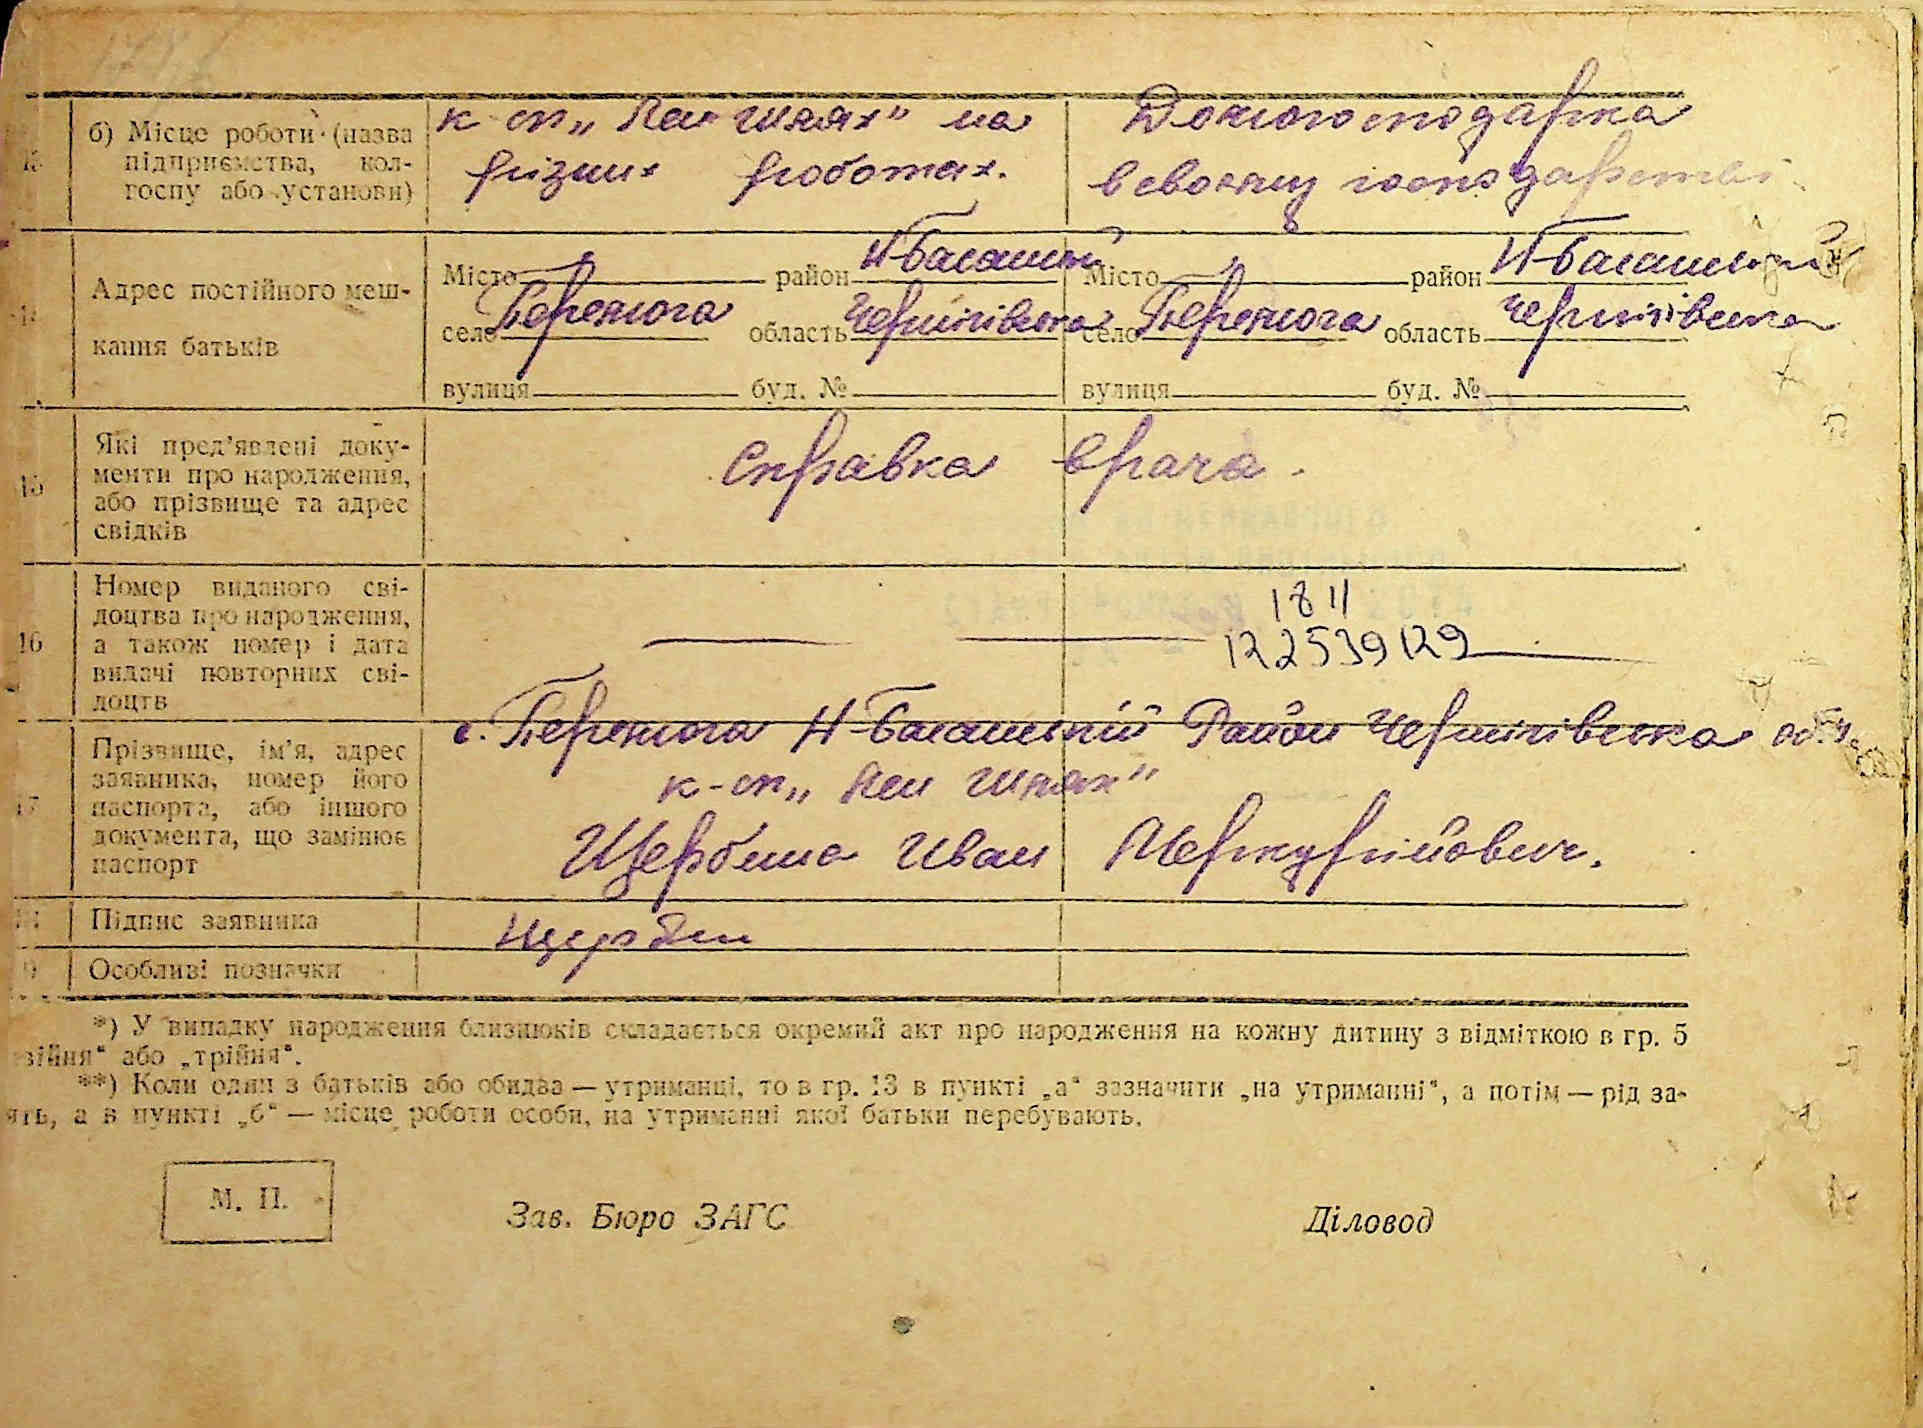 13 б) Місце роботи (назва
підприємства, кол-
госпу або установи)
к-сп „Лен шлях" на
різних роботах.
Домогосподарка
в своєму господарстві.
14 Адрес постійного меш-
кання батьків
Місто район Н-Басанський
село Перемога область Чернігівська
вулиця буд. №
Місто район Н-Басанський
село Перемога область Чернігівська
вулиця буд. №
15 Які пред'явлені доку-
менти про народження,
або прізвище та адрес
свідків
Справка врача.
16 Номер виданого сві-
доцтва про народження,
а також номер і дата
видачі повторних сві-
доцтв
18 11
122539129
17 Прізвище, ім'я, адрес
заявника, номер його
паспорта, або іншого
документа, що замінює
паспорт
с. Перемога Н-Басанський Район Чернігівська обл.
к-сп „Лен Шлях"
Щербина Иван Меркурійович.
Підпис заявника
Щербин
Особливі позначки
*) У випадку народження близнюків складається окремий акт про народження на кожну дитину з відміткою в гр. 5
війня“ або „трійня“.
**) Коли один з батьків або обидва — утриманці, то в гр. 13 в пункті „а“ зазначити „на утриманні“, а потім — рід за-
ять, а в пункті „б“ — місце роботи особи, на утриманні якої батьки перебувають.
М. П.
Зав. Бюро ЗАГС
Діловод